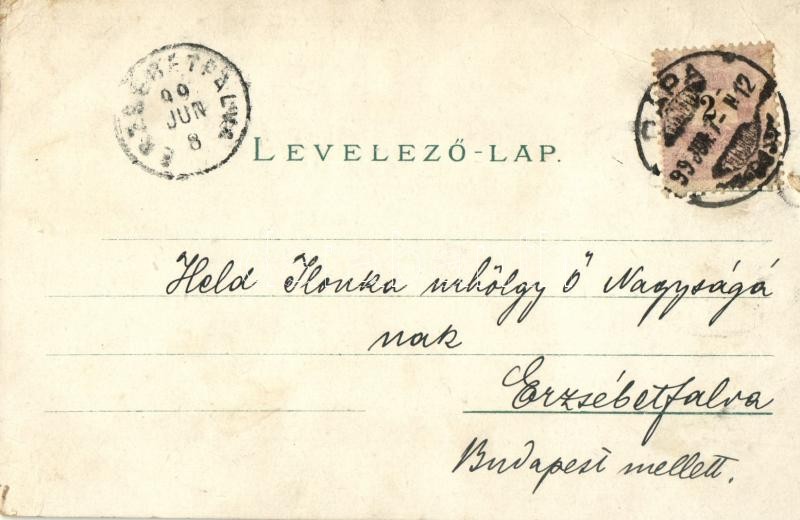 ERZSÉBETFALVA
99
JUN
8
PÁPA
2
99 JUN. 7 - N 12
LEVELEZŐ-LAP.
Held Ilonka urhölgy Ő Nagyságá
nak
Erzsébetfalva
Budapest mellett.